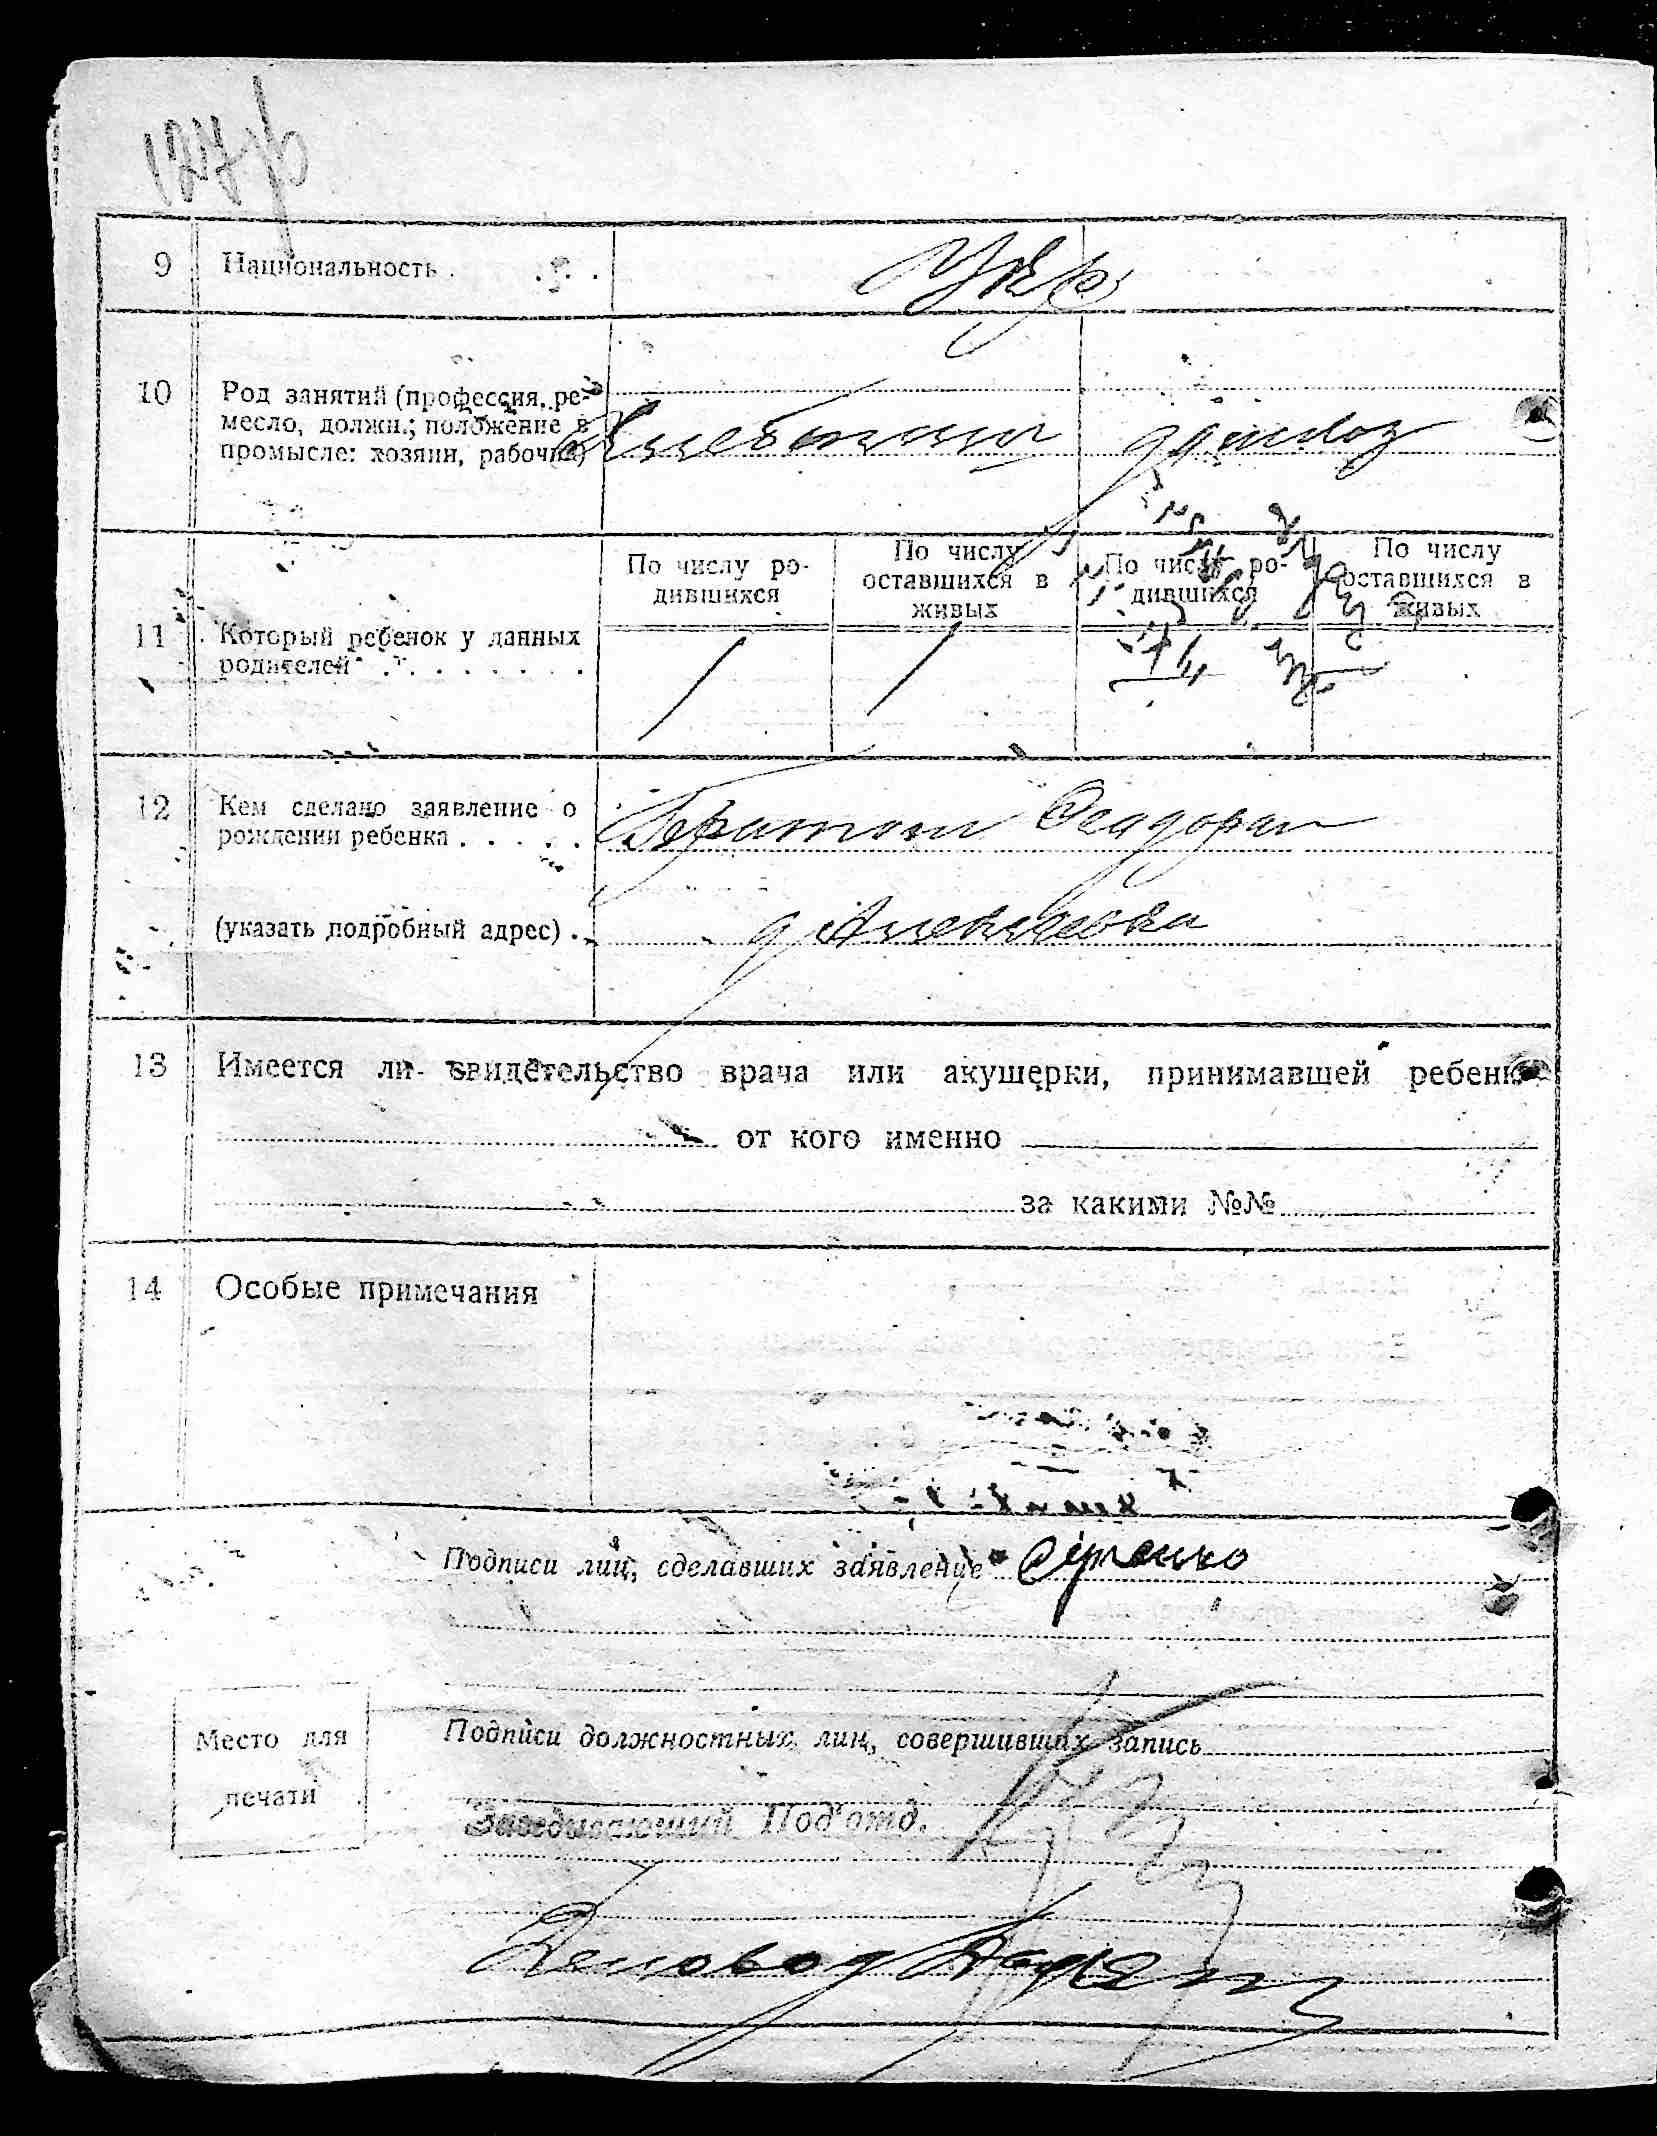 9 Национальность . . . . Укр
10 Род занятий (профессия, ре-
месло, должн.; положение в
промысле: хозяин, рабочий) Хлебопаш домхоз
11 Который ребенок у данных
родителей . . . . . . . .
По числу ро-
дившихся
По числу
оставшихся в
живых
По числу ро-
дившихся
По числу
оставшихся в
живых
12 Кем сделано заявление о
рождении ребенка . . . . . Феадорам
(указать подробный адрес) . . д Алексеевка
13 Имеется ли свидетельство врача или акушерки, принимавшей ребенка
от кого именно
за какими №№
14 Особые примечания
Подписи лиц, сделавших заявление
Место для
печати
Подписи должностных лиц, совершивших запись
Заведывающий Под'отд.
Деловод